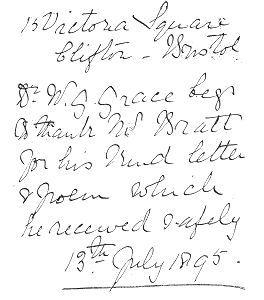 15 Victoria Square
Clifton - Bristol
Dr. W. G. Grace begs
to thank Mr Bratt
for his kind letter
& poem which
he received safely
13th July 1895.